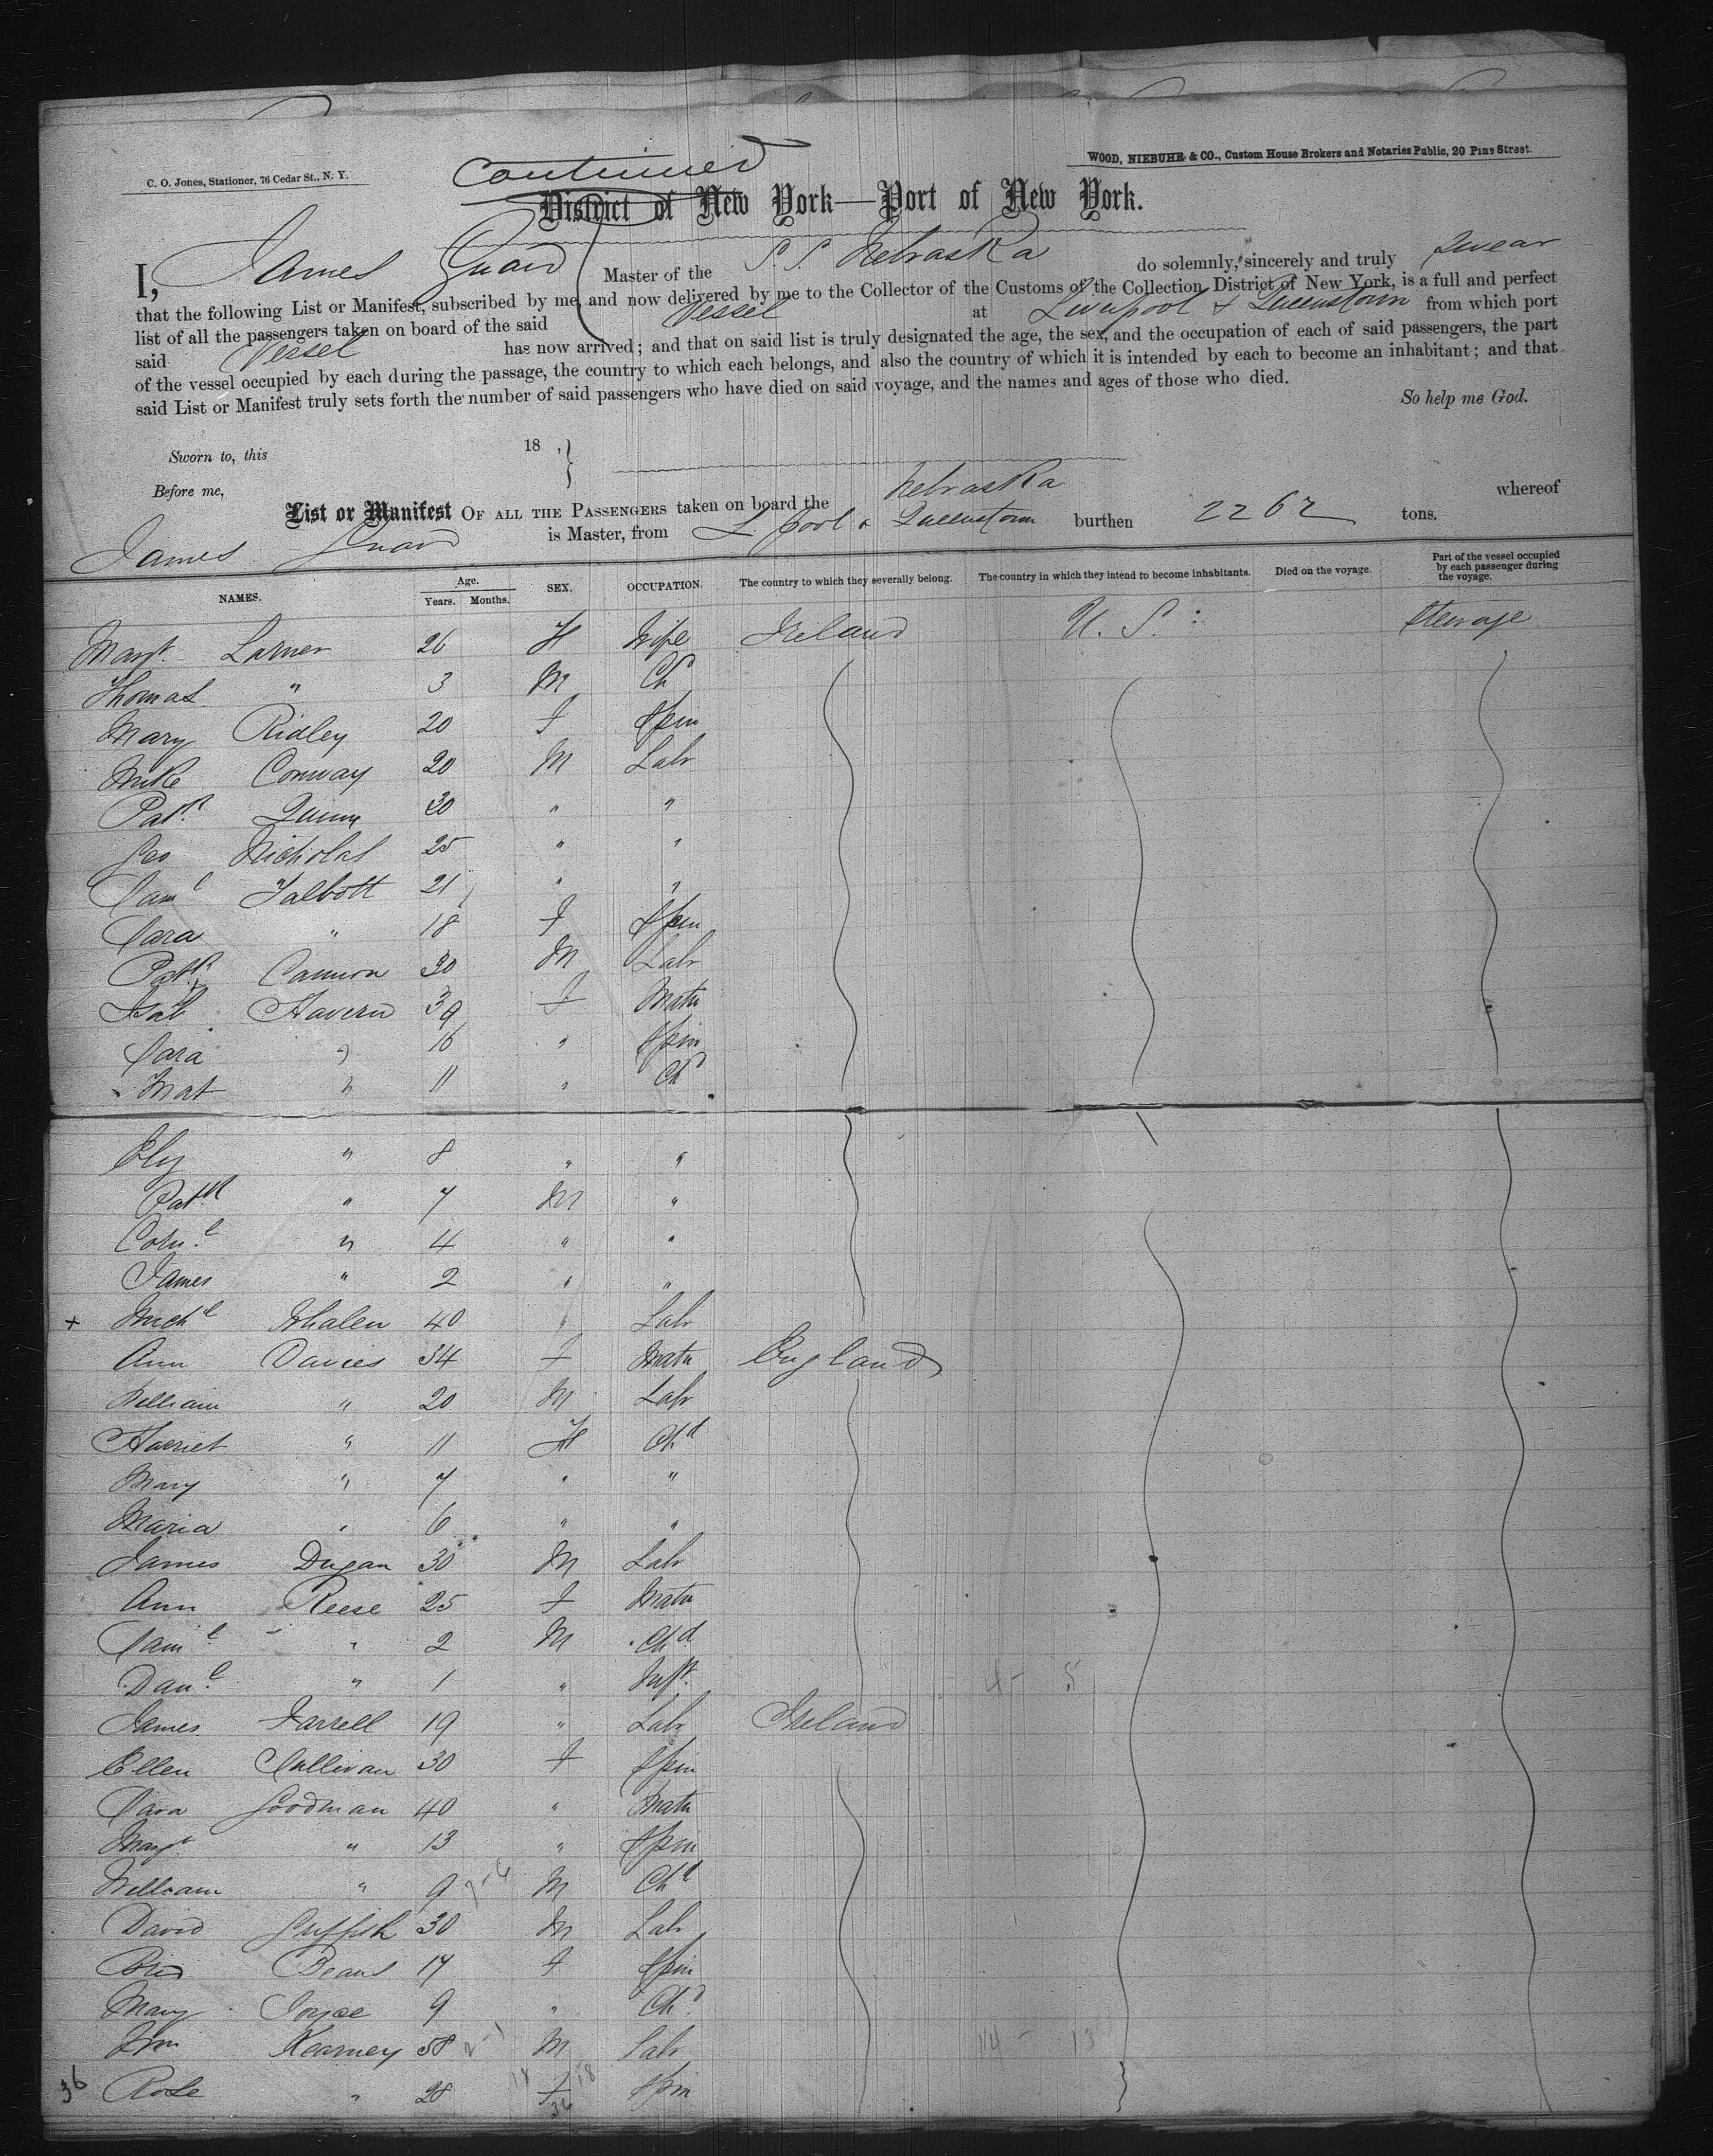 C. O. Jones, Stationer, 76 Cedar St., N. Y.
WOOD, NIEBUHR & CO., Custom House Brokers and Notaries Public, 20 Pine Street.
Continued
District of New York—Port of New York.
I, James Guard Master of the S. S. Nebraska do solemnly, sincerely and truly Swear
that the following List or Manifest, subscribed by me, and now delivered by me to the Collector of the Customs of the Collection District of New York, is a full and perfect
list of all the passengers taken on board of the said Vessel at Liverpool & Queenstown from which port
said Vessel has now arrived; and that on said list is truly designated the age, the sex, and the occupation of each of said passengers, the part
of the vessel occupied by each during the passage, the country to which each belongs, and also the country of which it is intended by each to become an inhabitant; and that
said List or Manifest truly sets forth the number of said passengers who have died on said voyage, and the names and ages of those who died.
So help me God.
Sworn to, this 18 ,
Before me,
List or Manifest OF ALL THE PASSENGERS taken on board the Nebraska whereof
James Guard is Master, from L'pool & Queenstown burthen 2262 tons.
NAMES. Age. Years. Months. SEX. OCCUPATION. The country to which they severally belong. The country in which they intend to become inhabitants. Died on the voyage. Part of the vessel occupied by each passenger during the voyage.
Margt. Larner 26 F Wife Ireland U. S. Steerage
Thomas " 3 M Chd
Mary Ridley 20 F Spin
Mike Conway 20 M Labr
Patk Quinn 30 " "
Geo Nicholas 25 " "
Saml Talbott 21 " "
Sara " 18 F Spin
Patk Cannon 30 M Labr
Isab Havern 39 F Matn
Sara " 16 " Spin
Mat " 11 " Chd
Eliz " 8 " "
Patk " 7 M "
Cornl " 4 " "
James " 2 " "
+ Michl Whalen 40 " Labr
Ann Davies 34 F Matn England
William " 20 M Labr
Harriet " 11 F Chd
Mary " 7 " "
Maria " 6 " "
James Dugan 30 M Labr
Ann Reese 25 F Matn
Saml " 2 M Chd
Danl " 1 " Inft
James Farrell 19 " Labr Ireland
Ellen Sullivan 30 F Spin
Sara Goodman 40 " Matn
Margt " 13 " Spin
William " 9 M Chd
David Griffith 30 M Labr
Brid Beans 17 F Spin
Mary Joyce 9 " Chd
Wm Kearney 58 M Labr 14 - 13
36 Rose " 28 F Spin